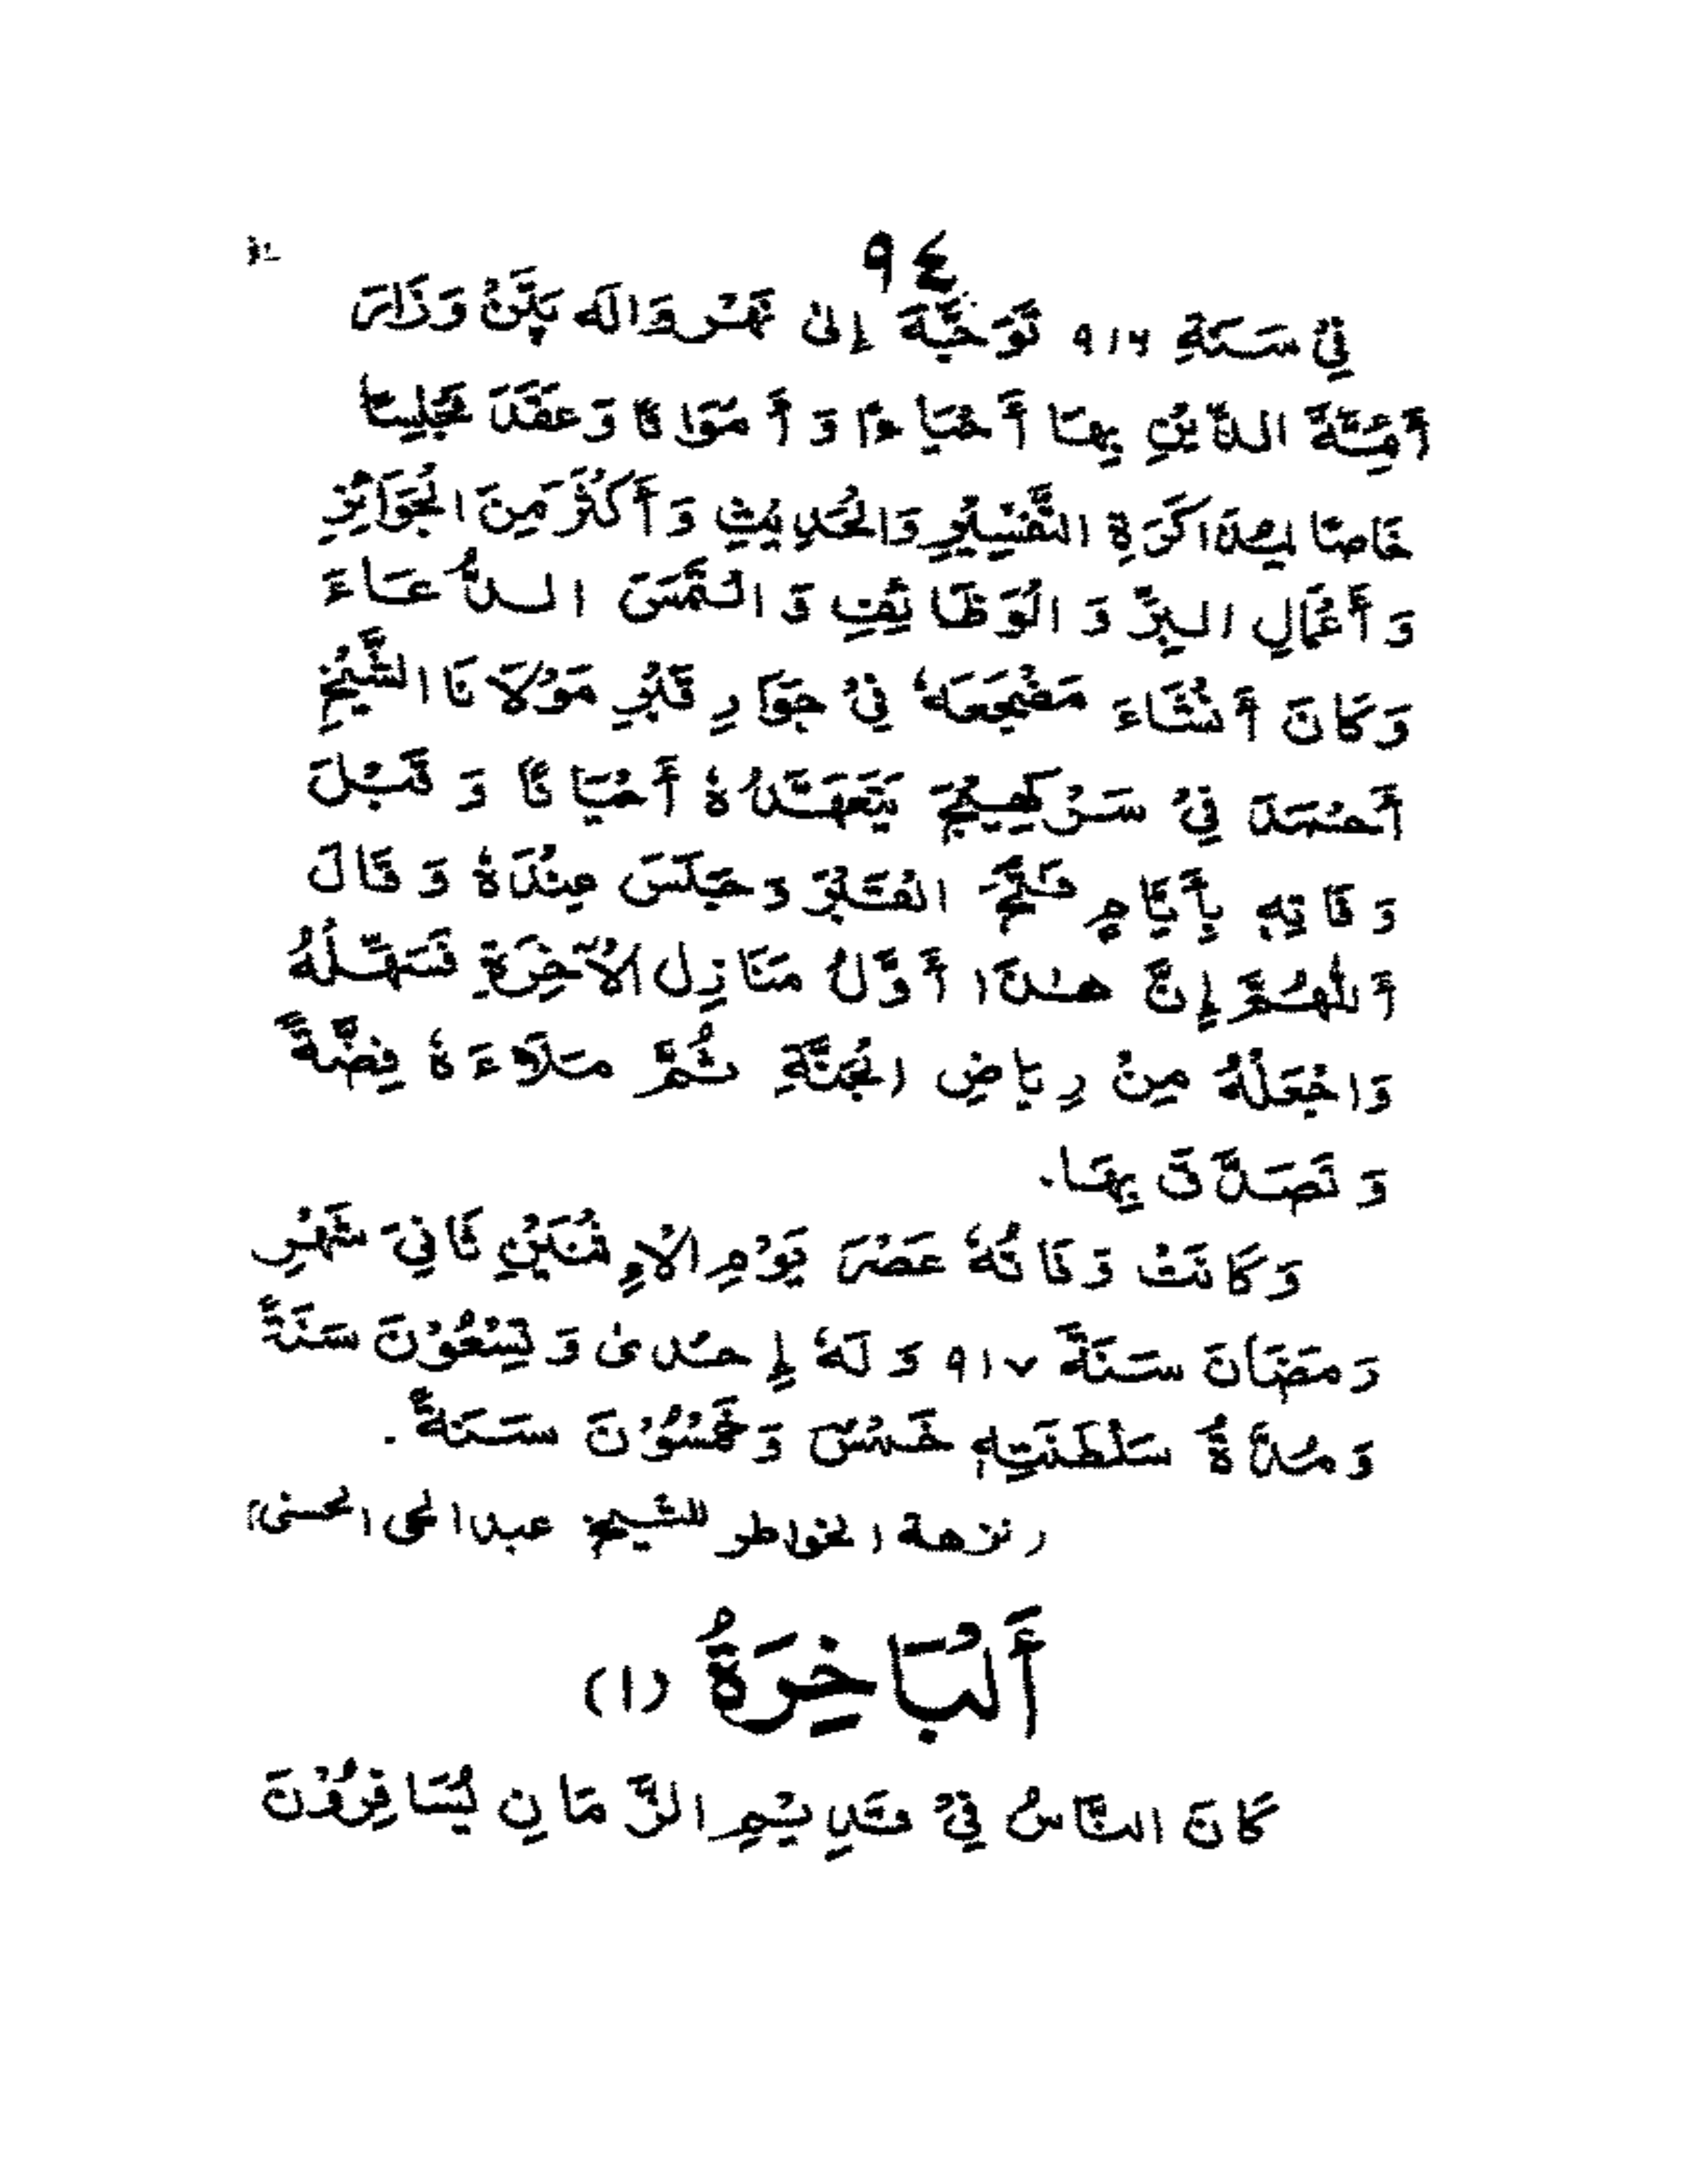 ٩٤
فِيْ سَنَةِ ٩١٦ تَوَجَّهَ إِلىٰ نَهْرِوَالَه پَتَنْ وَزَارَ
أَئِمَّةَ الدِّيْنِ بِهَا أَحْيَاءً وَ أَمْوَاتًا وَعَقَدَ مَجْلِسًا
خَاصًّا لِمُذَاكَرَةِ التَّفْسِيْرِ وَالْحَدِيْثِ وَ أَكْثَرَ مِنَ الْجَوَائِزِ
وَ أَعْمَالِ البِرِّ وَ الْوَظَائِفِ وَ الْتَمَسَ الدُّعَاءَ
وَكَانَ أَنْشَاءَ مَضْجَعَهٗ فِيْ جَوَارِ قَبْرِ مَوْلَانَا الشَّيْخِ
أَحْمَدَ فِيْ سَرْكهِيْجَ يَتَعَهَّدُهٗ أَحْيَانًا وَ قَبْلَ
وَفَاتِهٖ بِأَيَّامٍ فَتَحَ الْقَبْرَ وَجَلَسَ عِنْدَهٗ وَ قَالَ
أَللّٰهُمَّ إِنَّ هٰذَا أَوَّلُ مَنَازِلِ الْآخِرَةِ فَسَهِّلْهُ
وَاجْعَلْهُ مِنْ رِيَاضِ الْجَنَّةِ ثُمَّ مَلَاءَهٗ فِضَّةً
وَ تَصَدَّقَ بِهَا.
وَكَانَتْ وَفَاتُهٗ عَصْرَ يَوْمِ الْاِثْنَيْنِ ثَانِيَ شَهْرِ
رَمَضَانَ سَنَةً ٩١٧ وَ لَهٗ إِحْدىٰ وَ تِسْعُوْنَ سَنَةً
وَ مُدَّةُ سَلْطَنَتِهٖ خَمْسٌ وَخَمْسُوْنَ سَنَةً.
(نزهة الخواطر للشيخ عبدالحى الحسنى)
أَلْبَاخِرَةُ (١)
كَانَ النَّاسُ فِيْ قَدِيْمِ الزَّمَانِ يُسَافِرُوْنَ